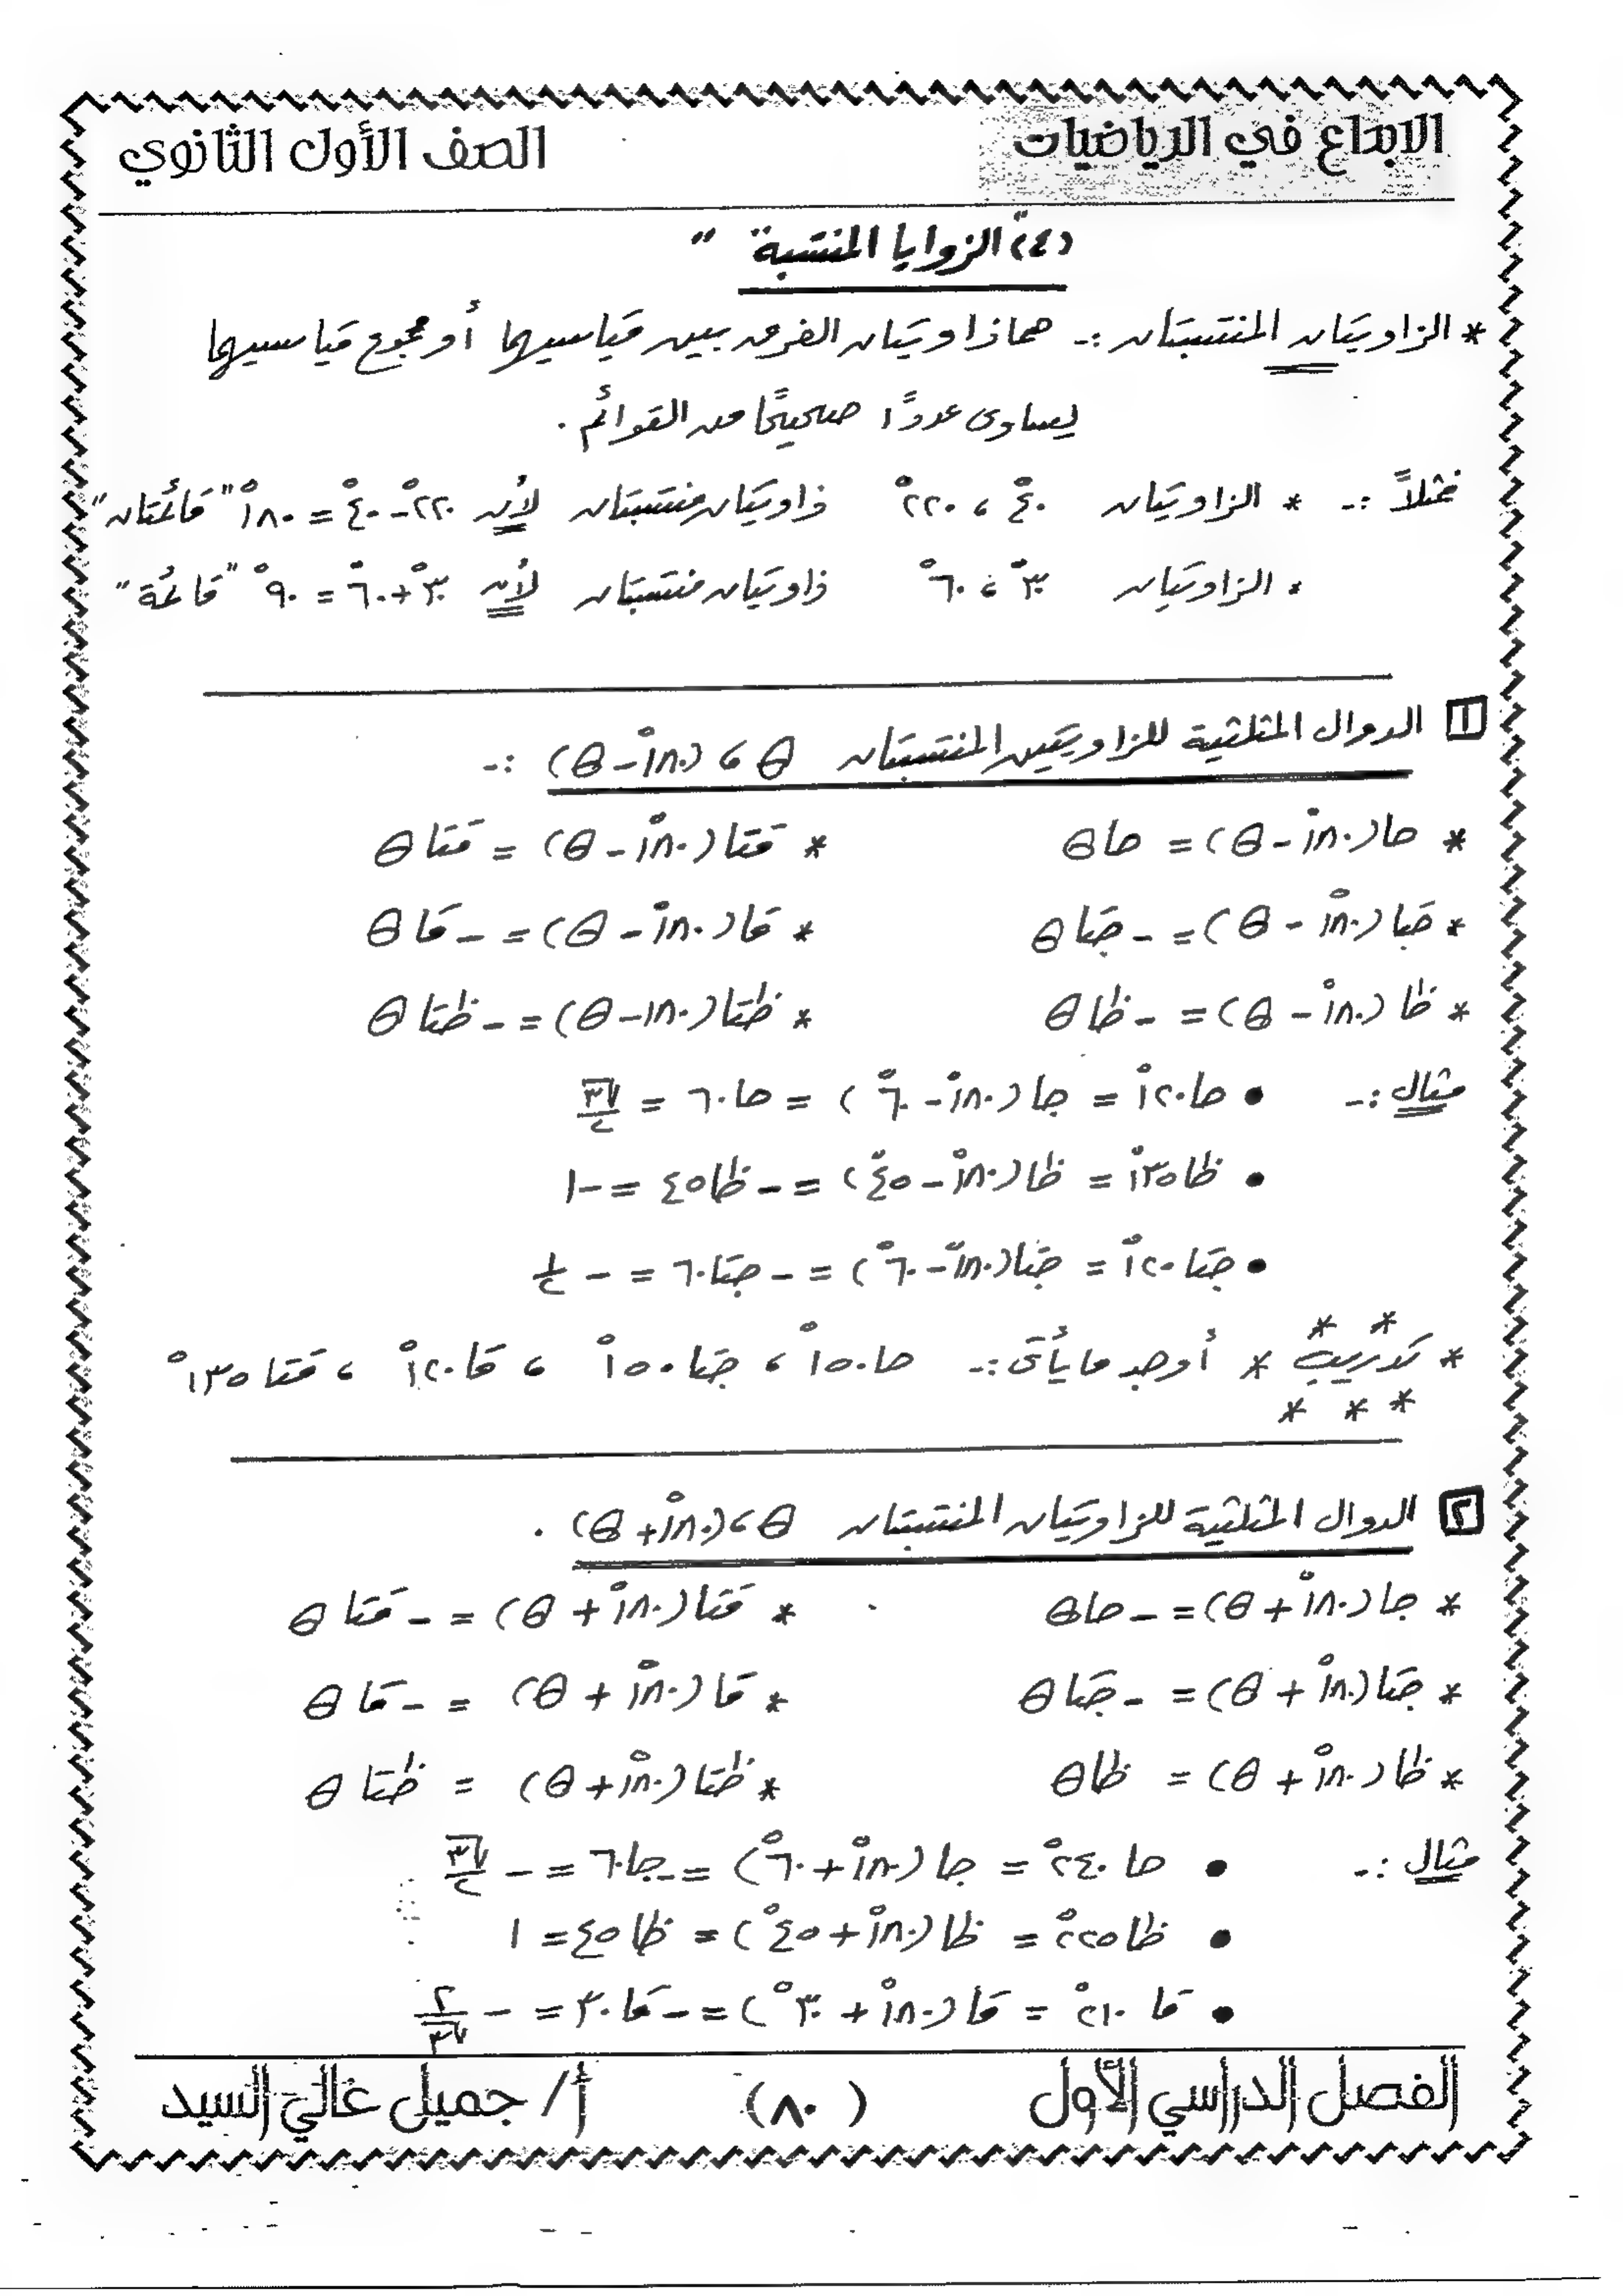 الابداع في الرياضيات
الصف الأول الثانوي
(٤) "الزوايا المنتسبة"
* الزاويتان المنتسبتان :- هما زاويتان الفرق بين قياسيهما أو مجموع قياسيهما
يساوى عددًا صحيحًا من القوائم .
فمثلاً :- * الزاويتان ٤٠° ، ٢٢٠° زاويتان منتسبتان لأن ٢٢٠° - ٤٠° = ١٨٠° "قائمتان"
* الزاويتان ٣٠° ، ٦٠° زاويتان منتسبتان لأن ٣٠° + ٦٠° = ٩٠° "قائمة"
١ الدوال المثلثية للزاويتين المنتسبتان θ ، (١٨٠° - θ) :-
* حا (١٨٠° - θ) = حا θ * قتا (١٨٠° - θ) = قتا θ
* جتا (١٨٠° - θ) = - جتا θ * قا (١٨٠° - θ) = - قا θ
* ظا (١٨٠° - θ) = - ظا θ * ظتا (١٨٠ - θ) = - ظتا θ
مثال :- • حا ١٢٠° = جا (١٨٠° - ٦٠°) = حا ٦٠ = √٣/٢
• ظا ١٣٥° = ظا (١٨٠° - ٤٥°) = - ظا ٤٥ = -١
• جتا ١٢٠° = جتا (١٨٠° - ٦٠°) = - جتا ٦٠ = - ١/٢
* تدريب * أوجد ما يأتى :- حا ١٥٠° ، جتا ١٥٠° ، قا ١٢٠° ، قتا ١٣٥°
٢ الدوال المثلثية للزاويتان المنتسبتان θ ، (١٨٠° + θ) .
* جا (١٨٠° + θ) = - حا θ * قتا (١٨٠° + θ) = - قتا θ
* جتا (١٨٠° + θ) = - جتا θ * قا (١٨٠° + θ) = - قا θ
* ظا (١٨٠° + θ) = ظا θ * ظتا (١٨٠° + θ) = ظتا θ
مثال :- • حا ٢٤٠° = جا (١٨٠° + ٦٠°) = - جا ٦٠ = - √٣/٢
• ظا ٢٢٥° = ظا (١٨٠° + ٤٥°) = ظا ٤٥ = ١
• قا ٢١٠° = قا (١٨٠° + ٣٠°) = - قا ٣٠ = - ٢/√٣
الفصل الدراسي الأول (٨٠) أ/ جميل غالي السيد